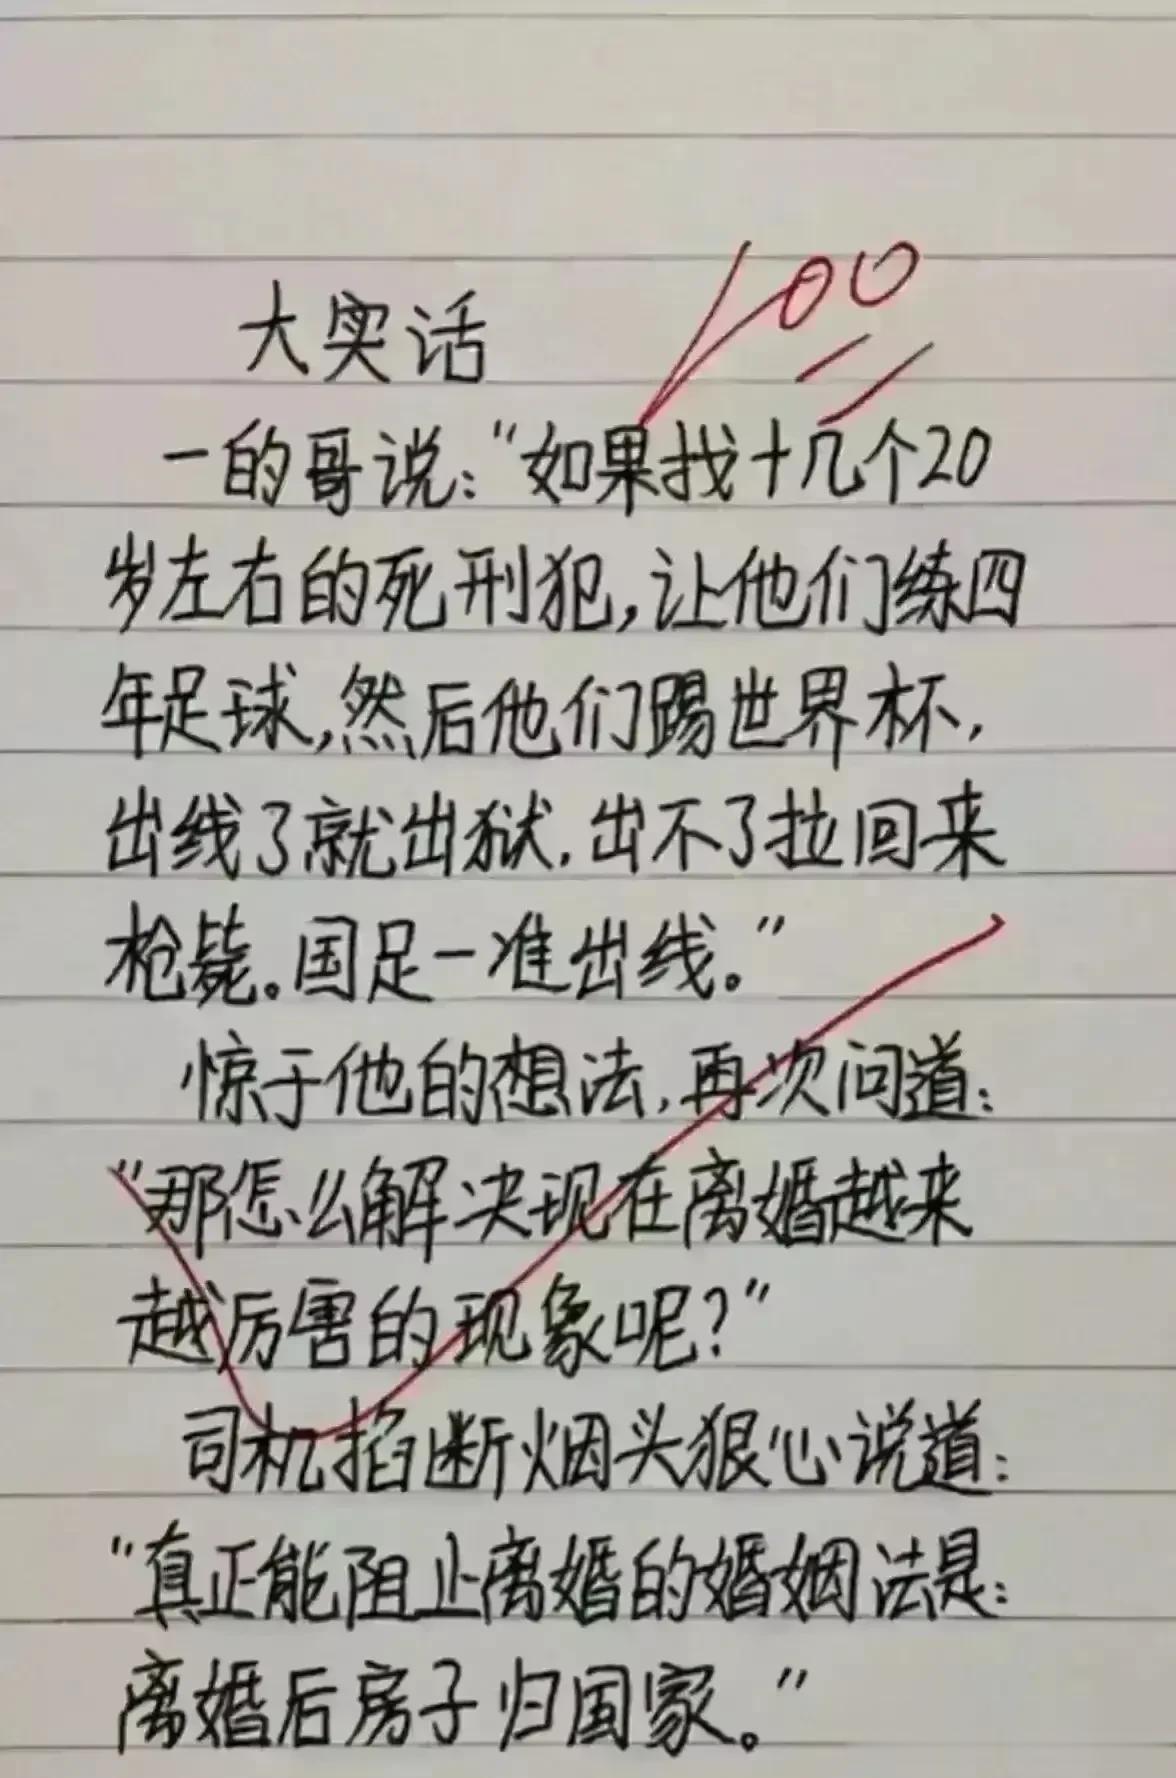 100
大实话
一的哥说:“如果找十几个20
岁左右的死刑犯,让他们练四
年足球,然后他们踢世界杯,
出线了就出狱.出不了拉回来
枪毙。国足一准出线。”
惊于他的想法,再次问道:
“那怎么解决现在离婚越来
越厉害的现象呢?”
司机掐断烟头狠心说道:
“真正能阻止离婚的婚姻法是:
离婚后房子归国家。”